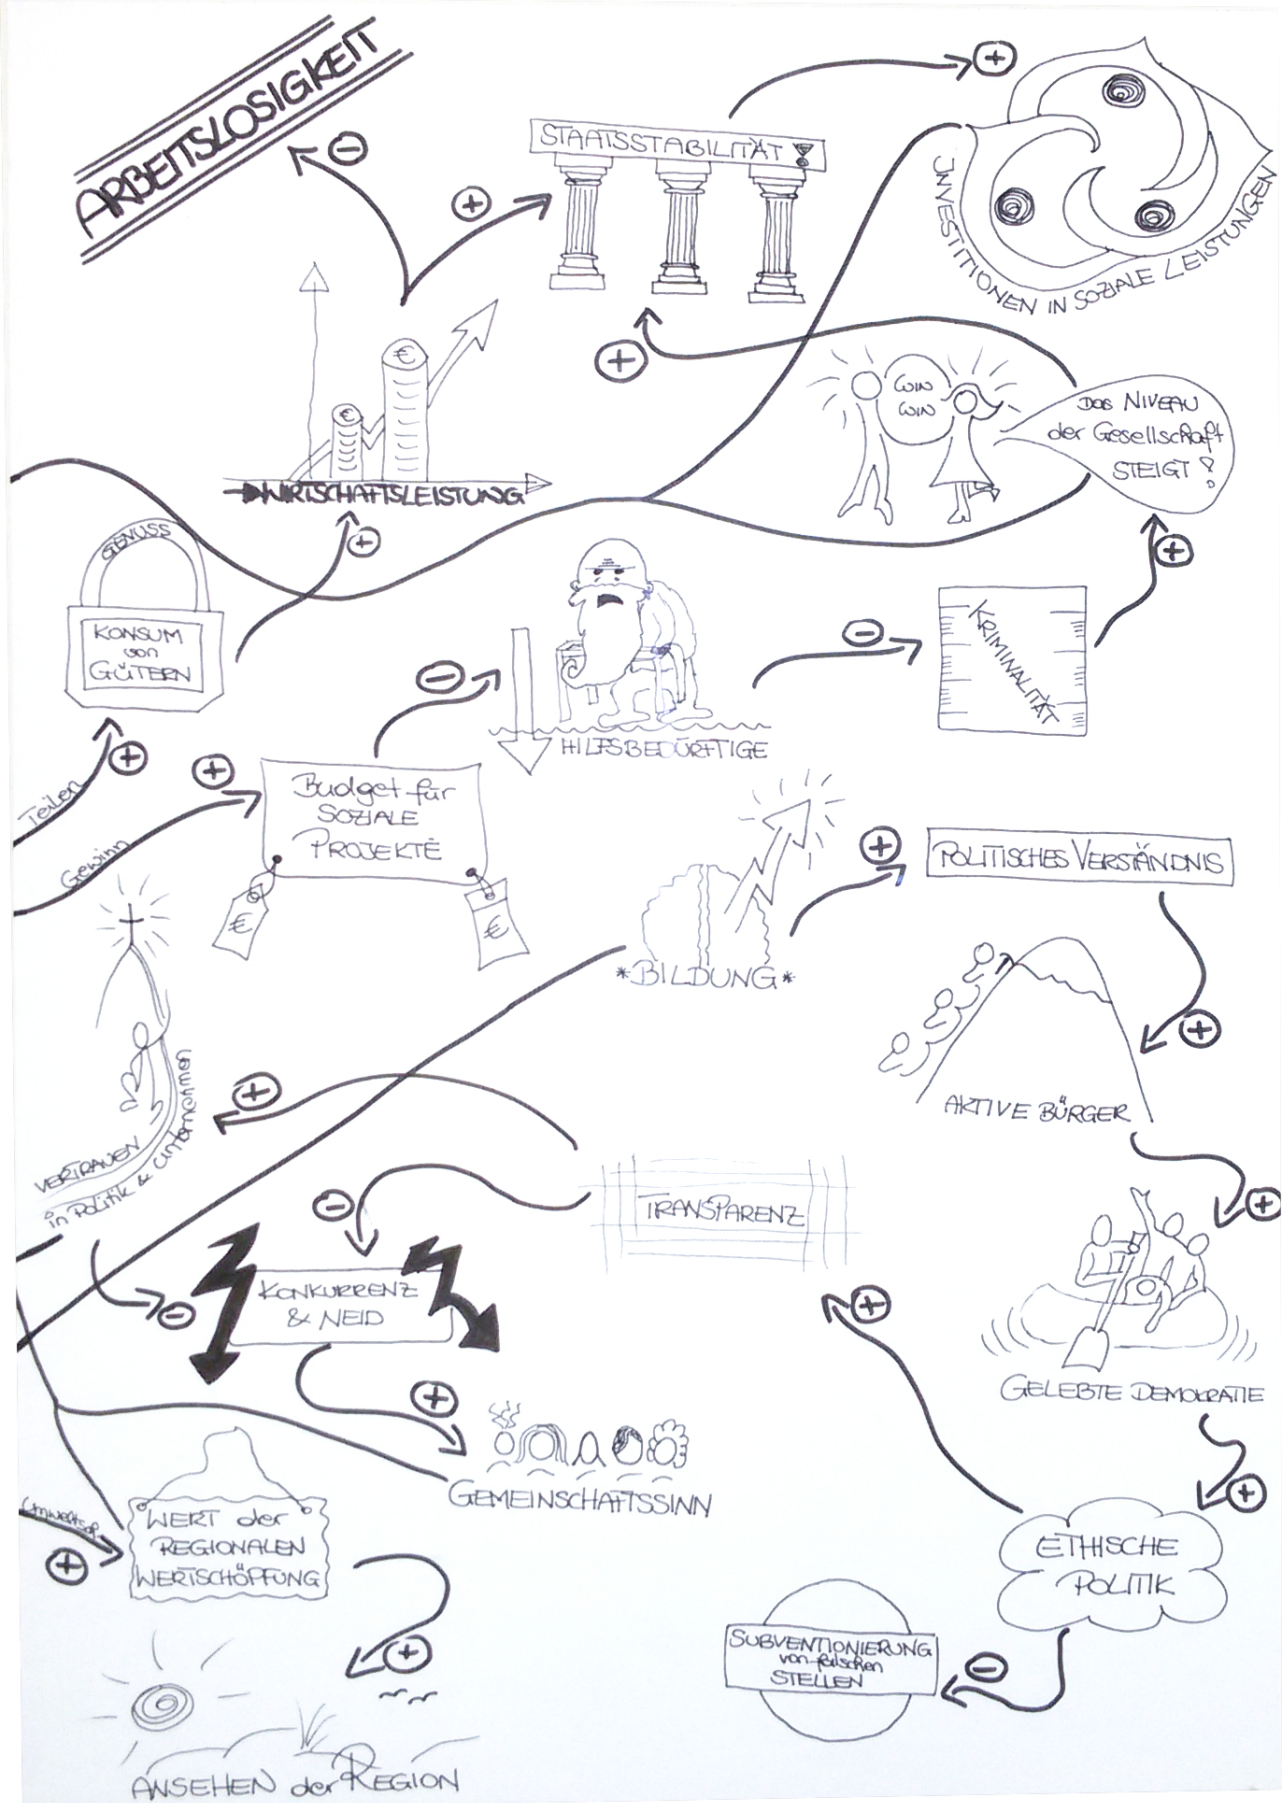 ARBEITSLOSIGKEIT
-
+
STAATSSTABILITÄT!
+
INVESTITIONEN IN SOZIALE LEISTUNGEN
+
€
€
WIRTSCHAFTSLEISTUNG
WIN
WIN
Das NIVEAU
der Gesellschaft
STEIGT!
GENUSS
KONSUM
von
GÜTERN
+
+
-
HILFSBEDÜRFTIGE
-
KRIMINALITÄT
+
Teilen
Gewinn
+
Budget für
SOZIALE
PROJEKTE
€
€
*BILDUNG*
+
POLITISCHES VERSTÄNDNIS
+
AKTIVE BÜRGER
VERTRAUEN
in Politik & Unternehmen
+
-
TRANSPARENZ
-
KONKURRENZ
& NEID
+
GEMEINSCHAFTSSINN
+
+
GELEBTE DEMOKRATIE
+
ETHISCHE
POLITIK
-
SUBVENTIONIERUNG
von falschen
STELLEN
+
WERT der
REGIONALEN
WERTSCHÖPFUNG
+
ANSEHEN der REGION